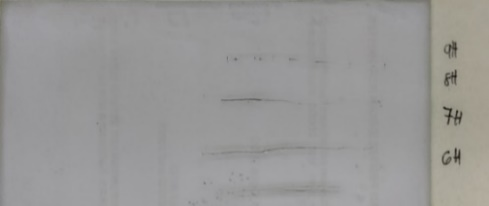 9H
8H
7H
6H